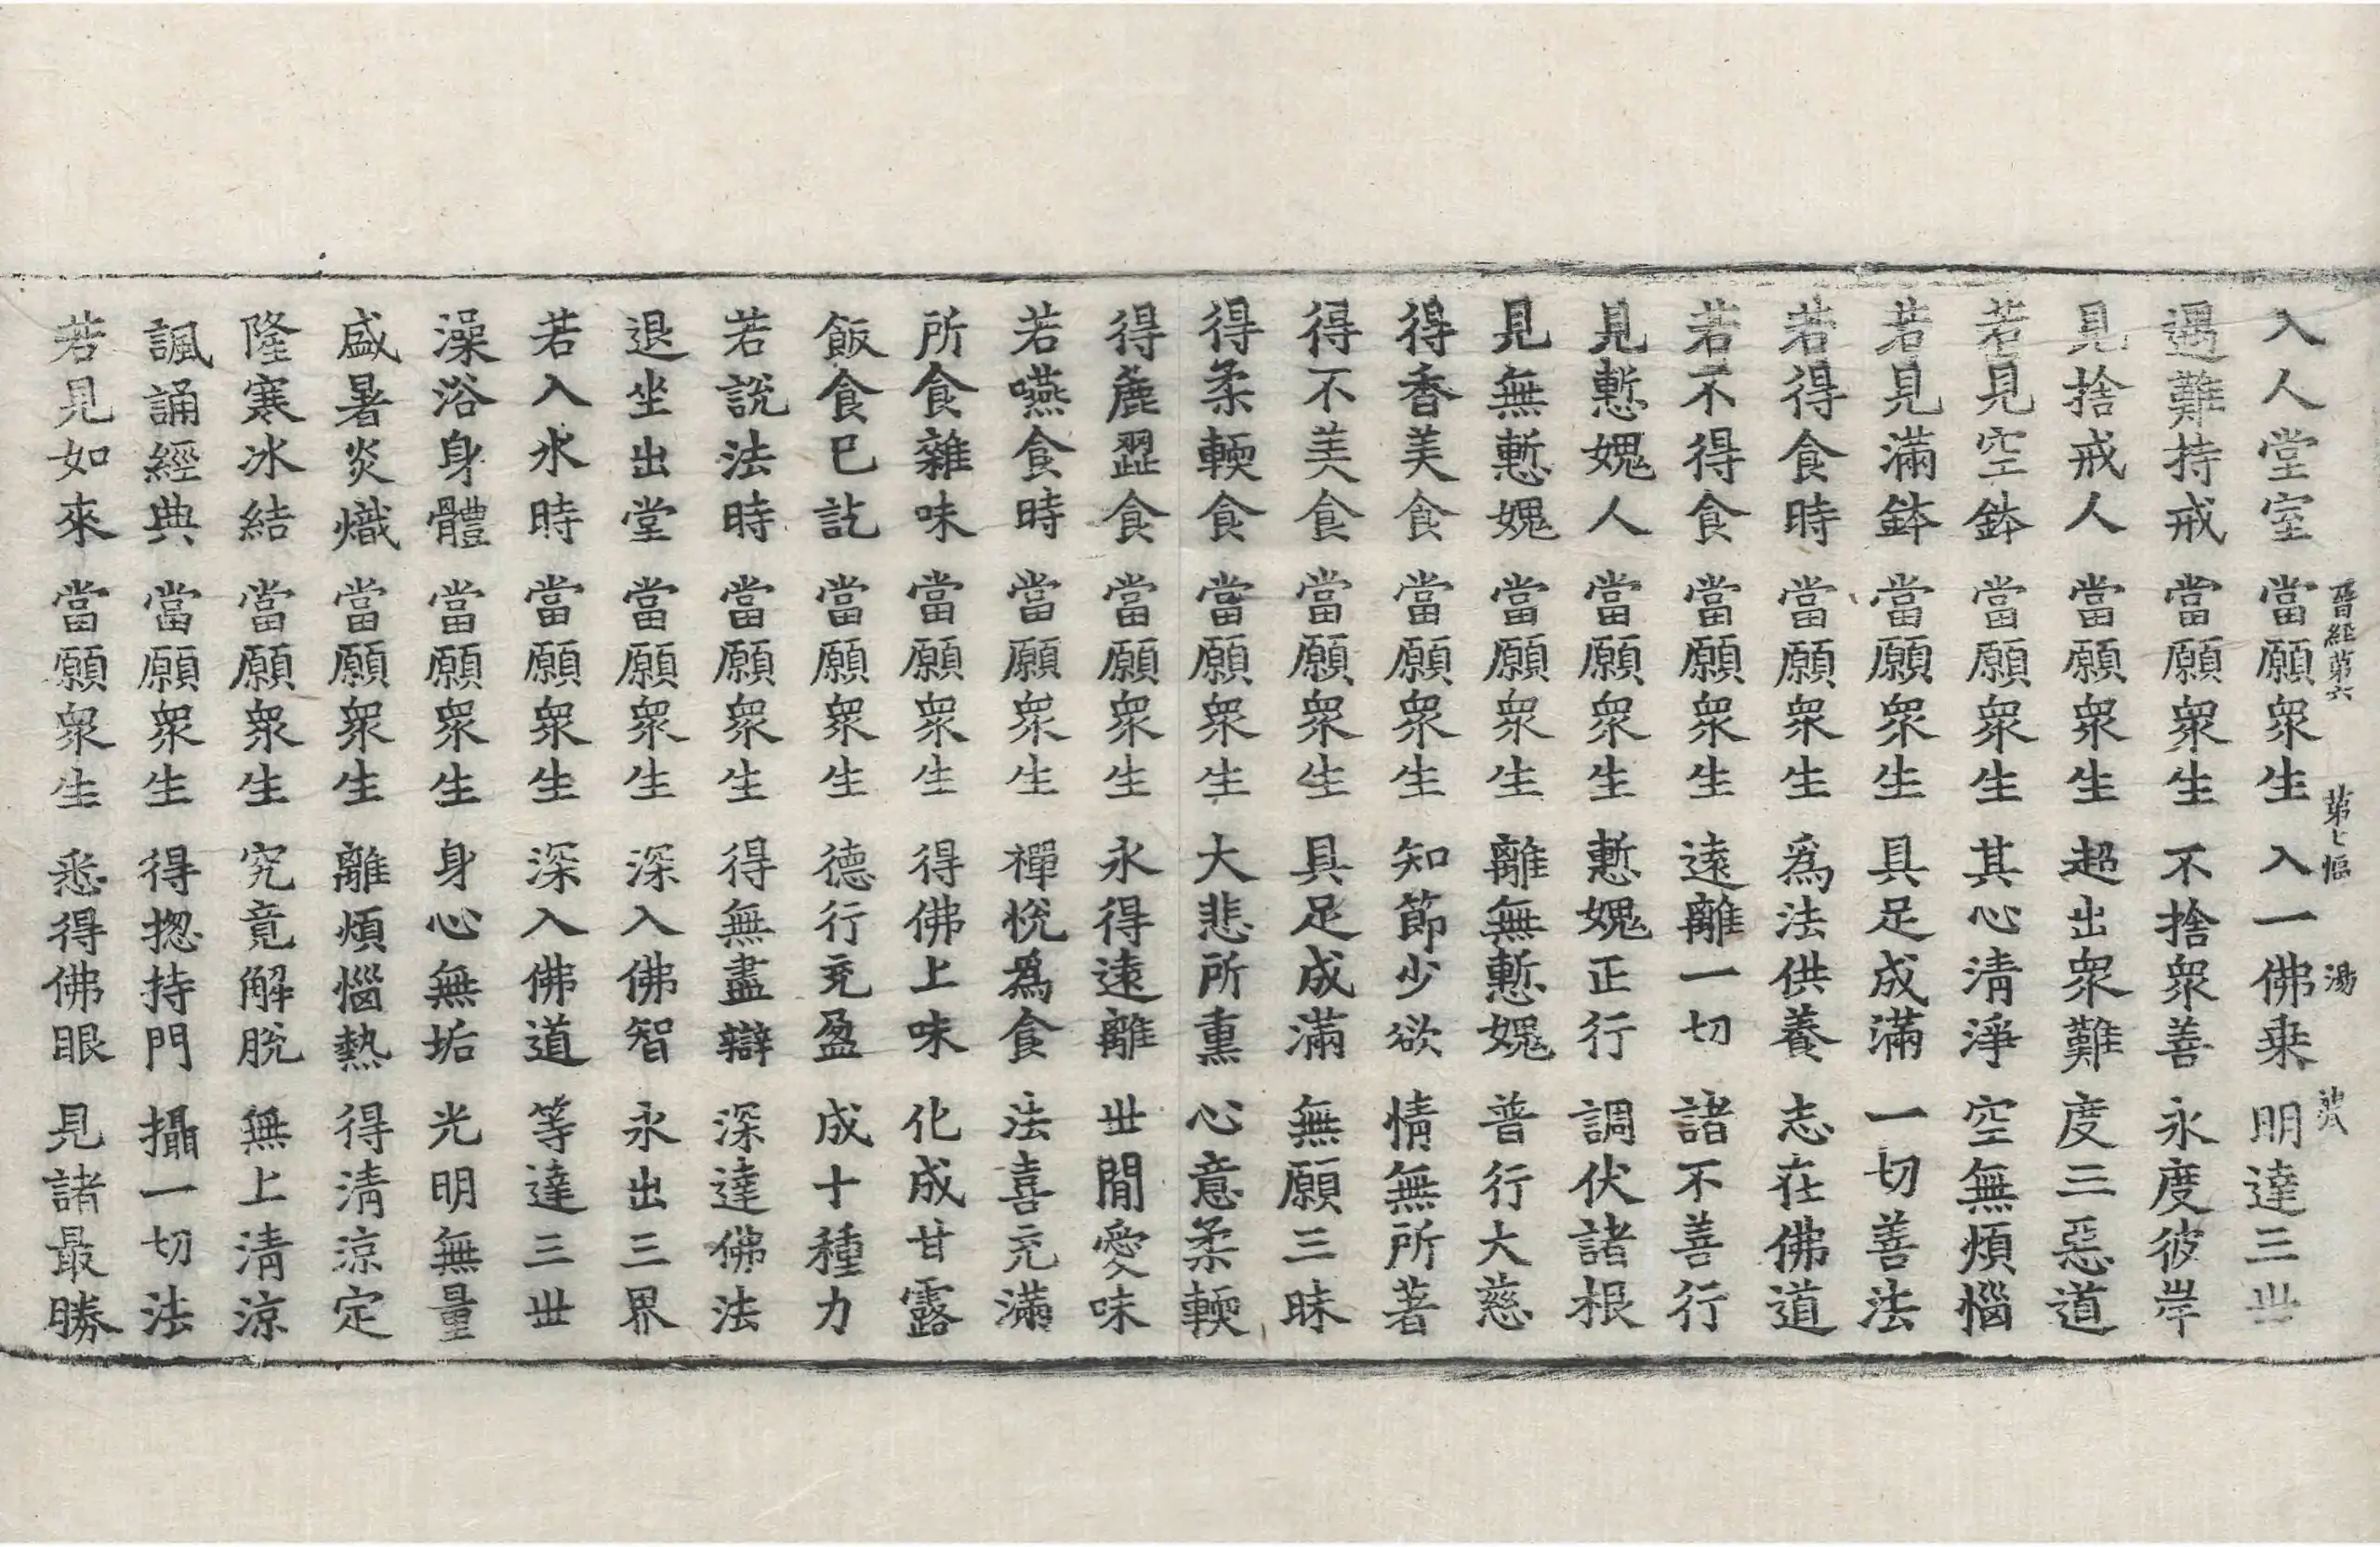 晉經第六 第七幅 湯
入人堂室 當願衆生 入一佛乗 明達三丗
遇難持戒 當願衆生 不捨衆善 永度彼岸
見捨戒人 當願衆生 超出衆難 度三惡道
若見空鉢 當願衆生 其心清淨 空無煩惱
若見滿鉢 當願衆生 具足成滿 一切善法
若得食時 當願衆生 爲法供養 志在佛道
若不得食 當願衆生 遠離一切 諸不善行
見慙媿人 當願衆生 慙媿正行 調伏諸根
見無慙媿 當願衆生 離無慙媿 普行大慈
得香美食 當願衆生 知節少欲 情無所著
得不美食 當願衆生 具足成滿 無願三昧
得柔輭食 當願衆生 大悲所熏 心意柔輭
得麁澀食 當願衆生 永得遠離 丗閒愛味
若嚥食時 當願衆生 禪悅為食 法喜充滿
所食雜味 當願衆生 得佛上味 化成甘露
飯食已訖 當願衆生 德行充盈 成十種力
若說法時 當願衆生 得無盡辯 深達佛法
退坐出堂 當願衆生 深入佛智 永出三界
若入水時 當願衆生 深入佛道 等達三丗
澡浴身體 當願衆生 身心無垢 光明無量
盛暑炎熾 當願衆生 離煩惱熱 得清涼定
隆寒冰結 當願衆生 究竟解脫 無上清涼
諷誦經典 當願衆生 得揔持門 攝一切法
若見如來 當願衆生 悉得佛眼 見諸最勝